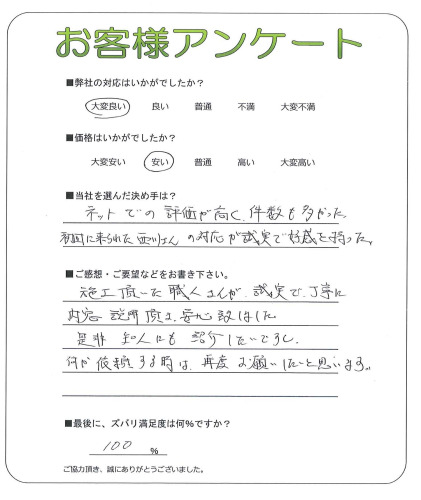 お客様アンケート
■弊社の対応はいかがでしたか？
大変良い 良い 普通 不満 大変不満
■価格はいかがでしたか？
大変安い 安い 普通 高い 大変高い
■当社を選んだ決め手は？
ネットでの評価が高く、件数も多かった
初回に来られた西川さんの対応が誠実で好感を持った。
■ご感想・ご要望などをお書き下さい。
施工頂いた職人さんが、誠実で、丁寧に
内容説明頂き、安心
是非知人にも紹介したいですし、
何か依頼する時は、再度お願いしたいと思います。
■最後に、ズバリ満足度は何％ですか？
100 ％
ご協力頂き、誠にありがとうございました。